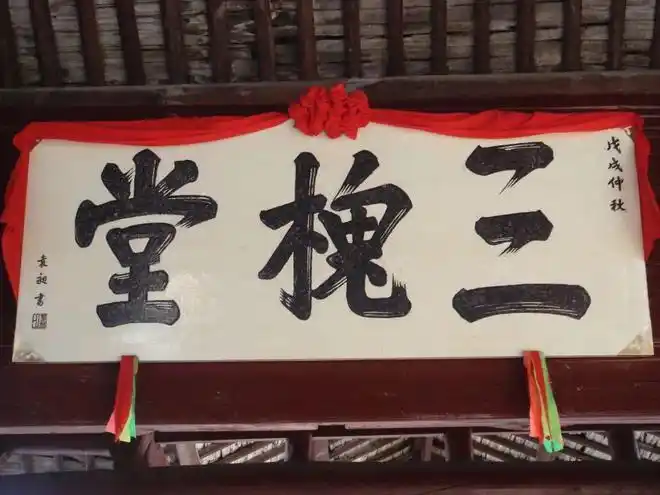 戊戌仲秋
三槐堂
袁昶書